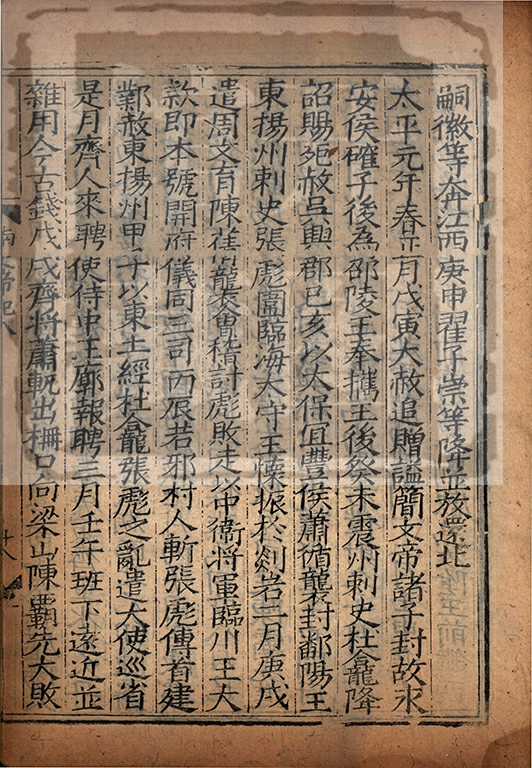 嗣徽等奔江西庚申翟子崇等降並放還北
太平元年春正月戊寅大赦追贈諡簡文帝諸子封故永
安侯確子後為邵陵王奉攜王後癸未震州刺史杜龕降
詔賜死赦吳興郡己亥以太保宜豐侯蕭循襲封鄱陽王
東揚州刺史張彪圍臨海太守王懷振於剡岩二月庚戌
遣周文育陳蒨襲會稽討彪敗走以中衞將軍臨川王大
款即本號開府儀同三司丙辰若邪村人斬張彪傳首建
鄴赦東揚州甲子以東土經杜龕張彪之亂遣大使巡省
是月齊人來聘使侍中王廓報聘三月壬午班下遠近並
雜用今古錢戊戌齊將蕭軌出柵口向梁山陳霸先大敗